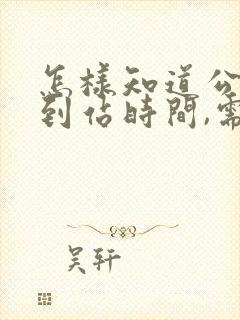 怎樣知道公
到站時間,需
吴轩